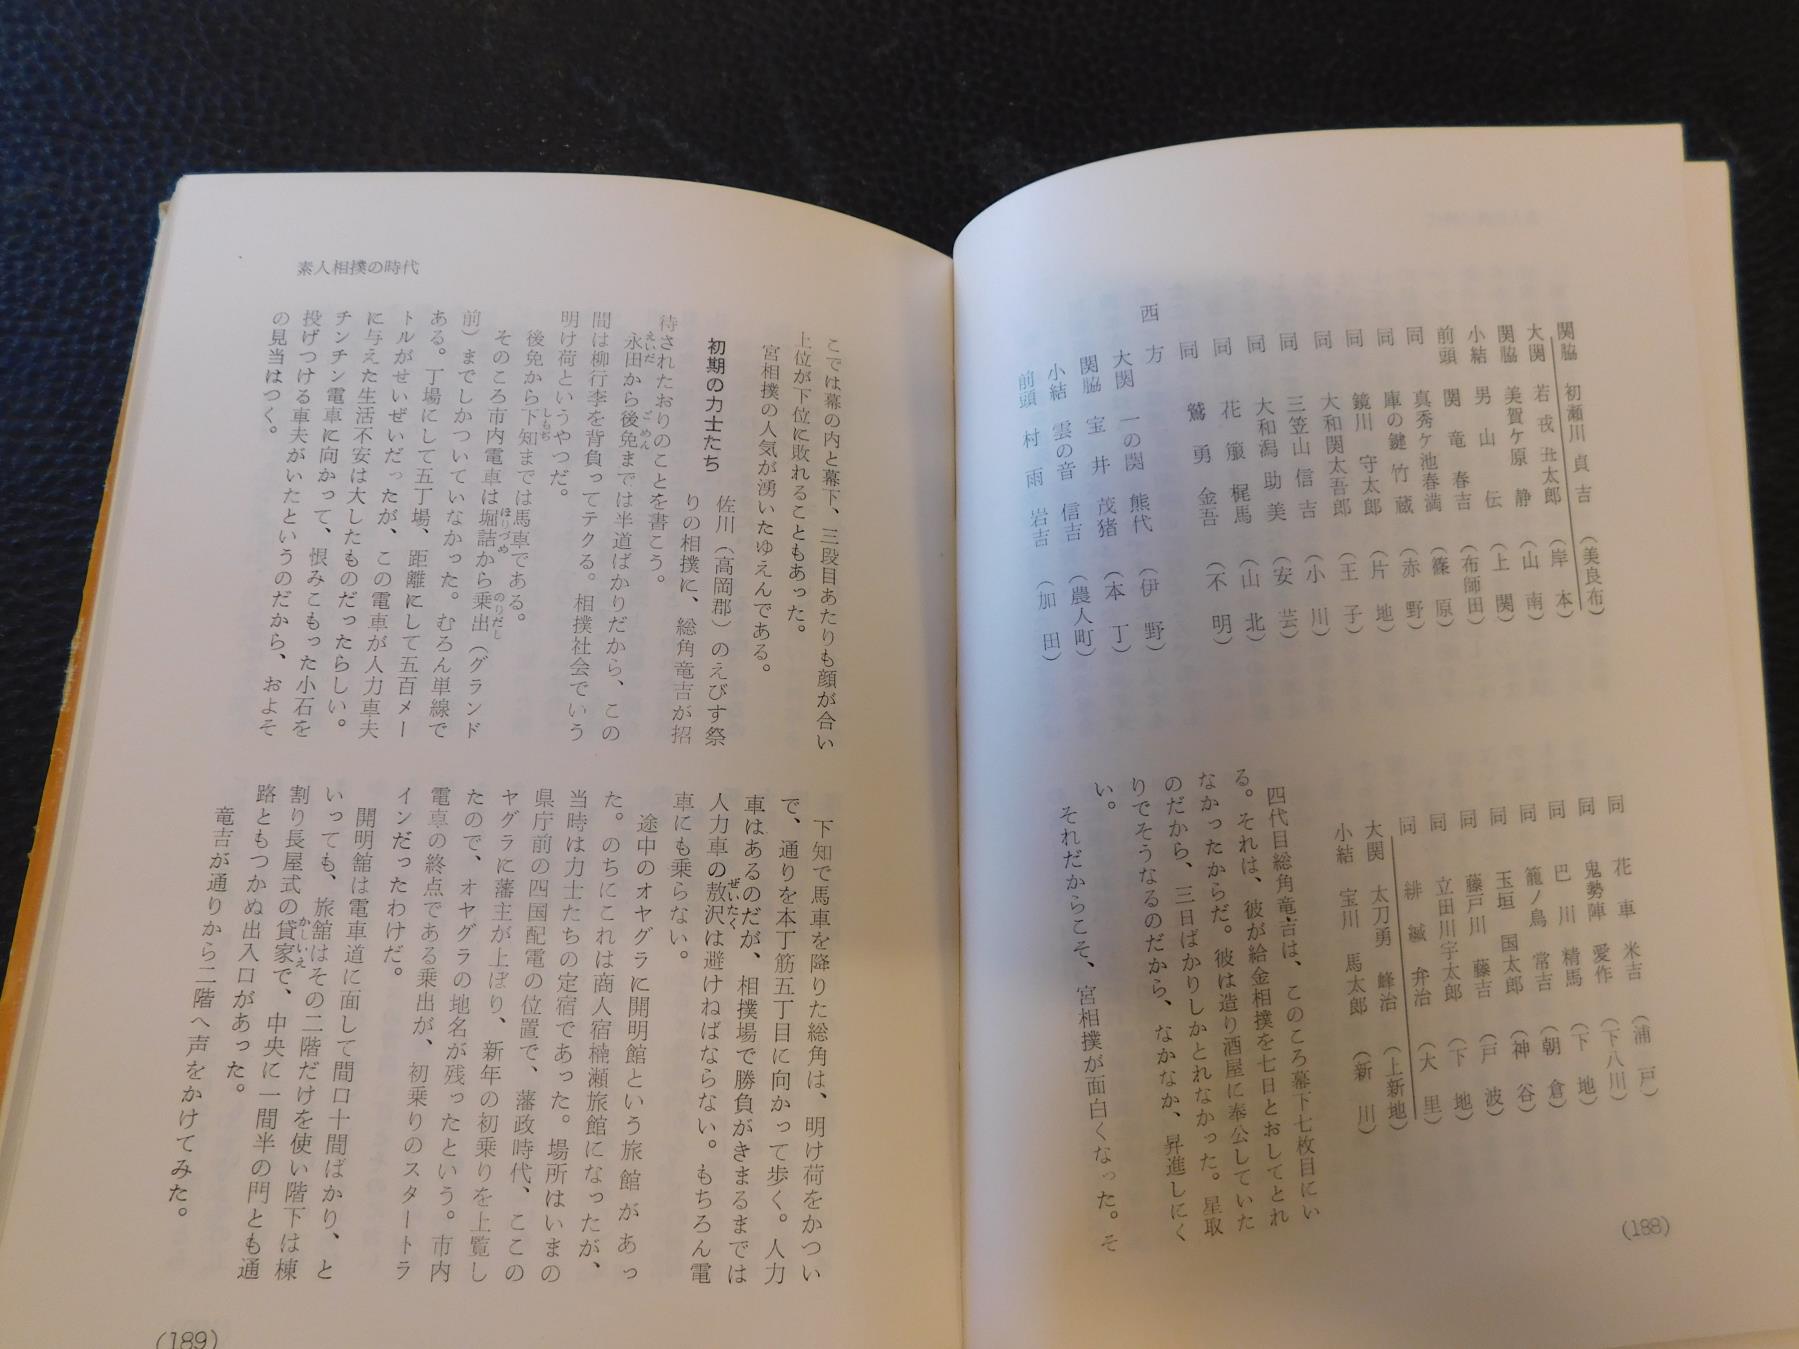 関脇　初瀬川　貞吉　（美良布）
大関　若戎　丑太郎　（岸本）
関脇　美賀ケ原　静　（山南）
小結　男山　伝　（上関）
前頭　関竜　春吉　（布師田）
同　真秀ケ池春満　（篠原）
同　庫の鍵　竹蔵　（赤野）
同　鏡川　守太郎　（片地）
同　大和関太吾郎　（王子）
同　三笠山　信吉　（小川）
同　大和潟　助美　（安芸）
同　花籠　梶馬　（山北）
同　鷲　勇　金吾　（不明）
西方
大関　一の関　熊代　（伊野）
関脇　宝井　茂猪　（本丁）
小結　雲の音　信吉　（農人町）
前頭　村雨　岩吉　（加田）
同　花車　米吉　（浦戸）
同　鬼勢陣　愛作　（下八川）
同　巴川　精馬　（下地）
同　籠ノ鳥　常吉　（朝倉）
同　玉垣　国太郎　（神谷）
同　藤戸川　藤吉　（戸波）
同　立田川宇太郎　（下地）
同　緋縅　弁治　（大里）
大関　太刀勇　峰治　（上新地）
小結　宝川　馬太郎　（新川）
四代目総角竜吉は、このころ幕下七枚目にい
る。それは、彼が給金相撲を七日とおしてとれ
なかったからだ。彼は造り酒屋に奉公していた
のだから、三日ばかりしかとれなかった。星取
りでそうなるのだから、なかなか、昇進しにく
い。
それだからこそ、宮相撲が面白くなった。そ
(188)
素人相撲の時代
こでは幕の内と幕下、三段目あたりも顔が合い
上位が下位に敗れることもあった。
宮相撲の人気が湧いたゆえんである。
初期の力士たち
佐川（高岡郡）のえびす祭
りの相撲に、総角竜吉が招
待されたおりのことを書こう。
永田から後免までは半道ばかりだから、この
えいだ　ごめん
間は柳行李を背負ってテクる。相撲社会でいう
明け荷というやつだ。
後免から下知までは馬車である。
しもぢ
そのころ市内電車は堀詰から乗出（グランド
ほりづめ　のりだし
前）までしかついていなかった。むろん単線で
ある。丁場にして五丁場、距離にして五百メー
トルがせいぜいだったが、この電車が人力車夫
に与えた生活不安は大したものだったらしい。
チンチン電車に向かって、恨みこもった小石を
投げつける車夫がいたというのだから、およそ
の見当はつく。
下知で馬車を降りた総角は、明け荷をかつい
で、通りを本丁筋五丁目に向かって歩く。人力
車はあるのだが、相撲場で勝負がきまるまでは
人力車の敖沢は避けねばならない。もちろん電
ぜいたく
車にも乗らない。
途中のオヤグラに開明館という旅館があっ
た。のちにこれは商人宿楠瀬旅館になったが、
当時は力士たちの定宿であった。場所はいまの
県庁前の四国配電の位置で、藩政時代、ここの
ヤグラに藩主が上ぼり、新年の初乗りを上覧し
たので、オヤグラの地名が残ったという。市内
電車の終点である乗出が、初乗りのスタートラ
インだったわけだ。
開明舘は電車道に面して間口十間ばかり、と
いっても、旅舘はその二階だけを使い階下は棟
割り長屋式の貸家で、中央に一間半の門とも通
かしいえ
路ともつかぬ出入口があった。
竜吉が通りから二階へ声をかけてみた。
(189)